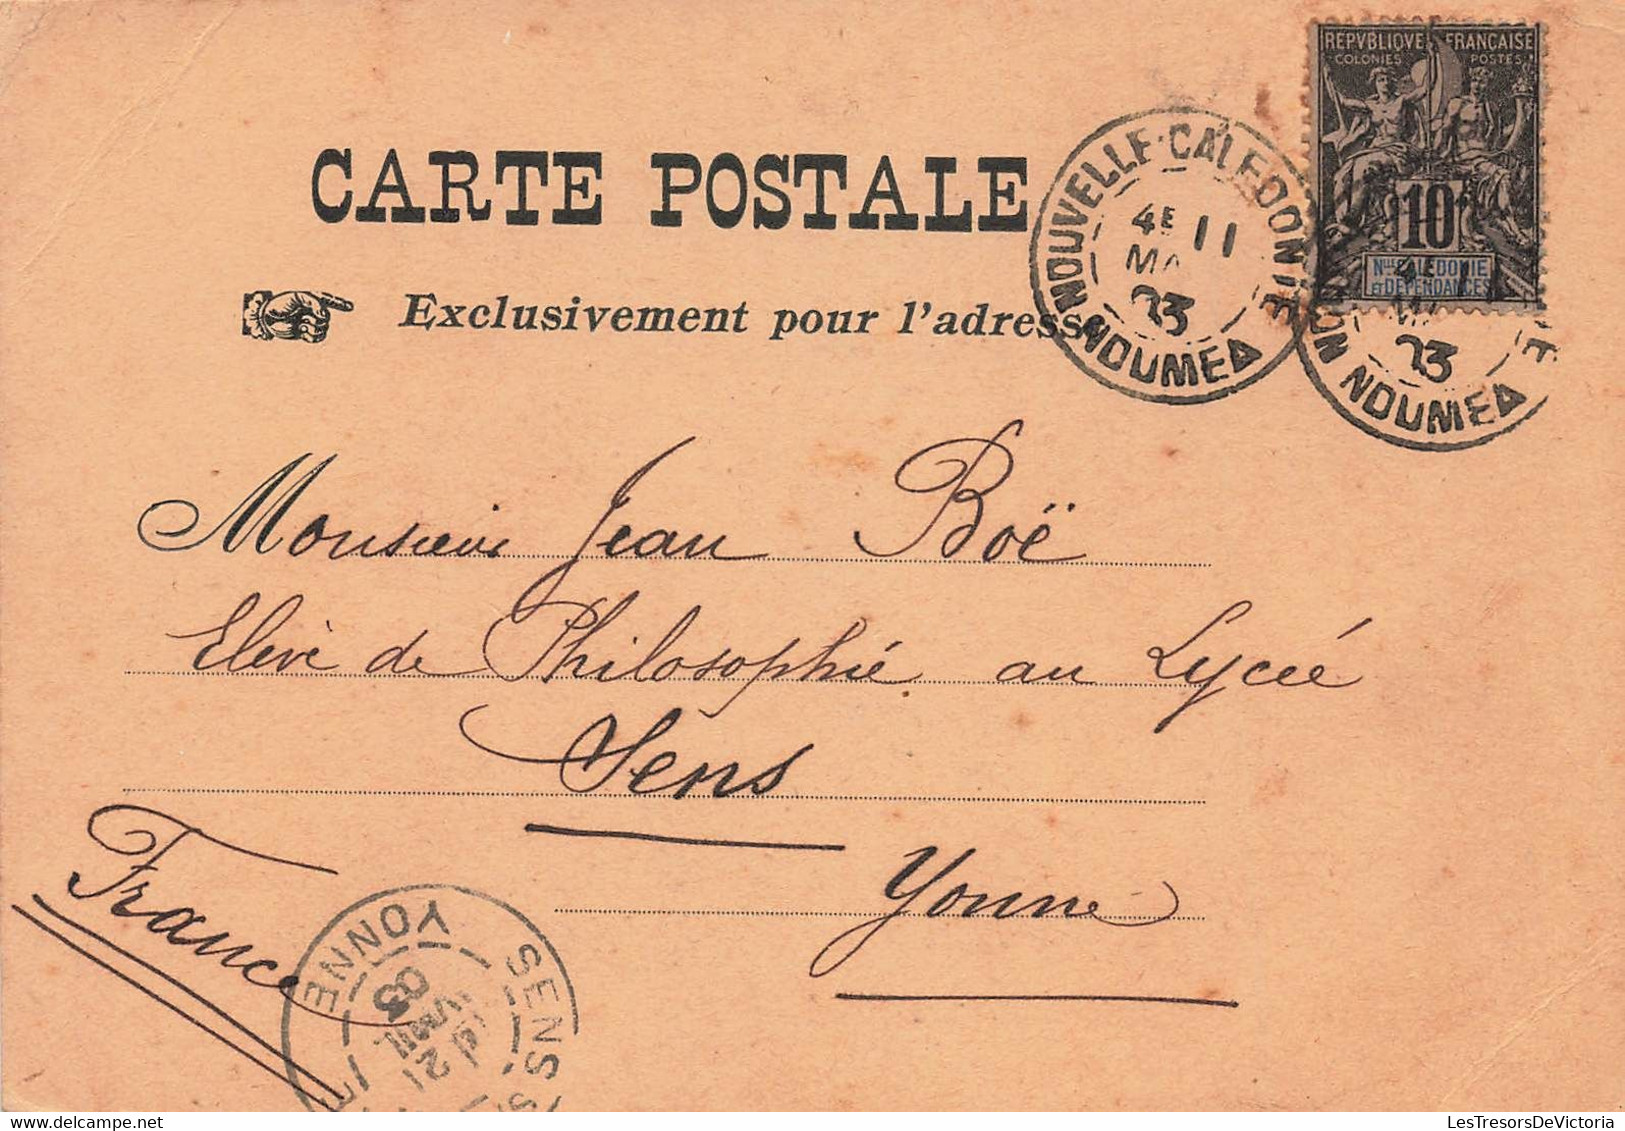 REPVBLIQVE FRANÇAISE
COLONIES POSTES
10
Nlle CALEDONIE
ET DEPENDANCES
NOUVELLE-CALEDONIE
4E 11
MA
03
NOUMEA
4E
03
NOUMEA
CARTE POSTALE
Exclusivement pour l'adresse
Monsieur Jean Boë
Elève de Philosophie au Lycée
Sens
Yonne
France
SENS
YONNE
21
AVRIL
03
LesTresorsDeVictoria.com